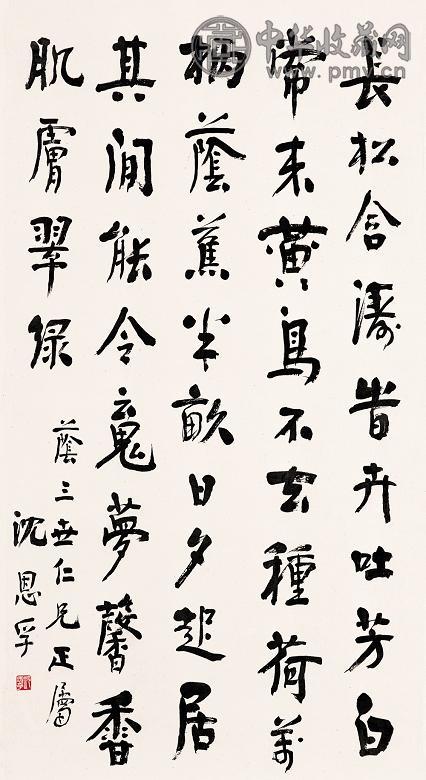 中华收藏网
www.pmy.cn
長松含濤旹卉吐芳白
常来黄鳥不去種荷萬
柄蔭蕉半畝日夕起居
其間能令魂夢馨香
肌膚翠綠
蔭三世仁兄正屬
沈恩孚